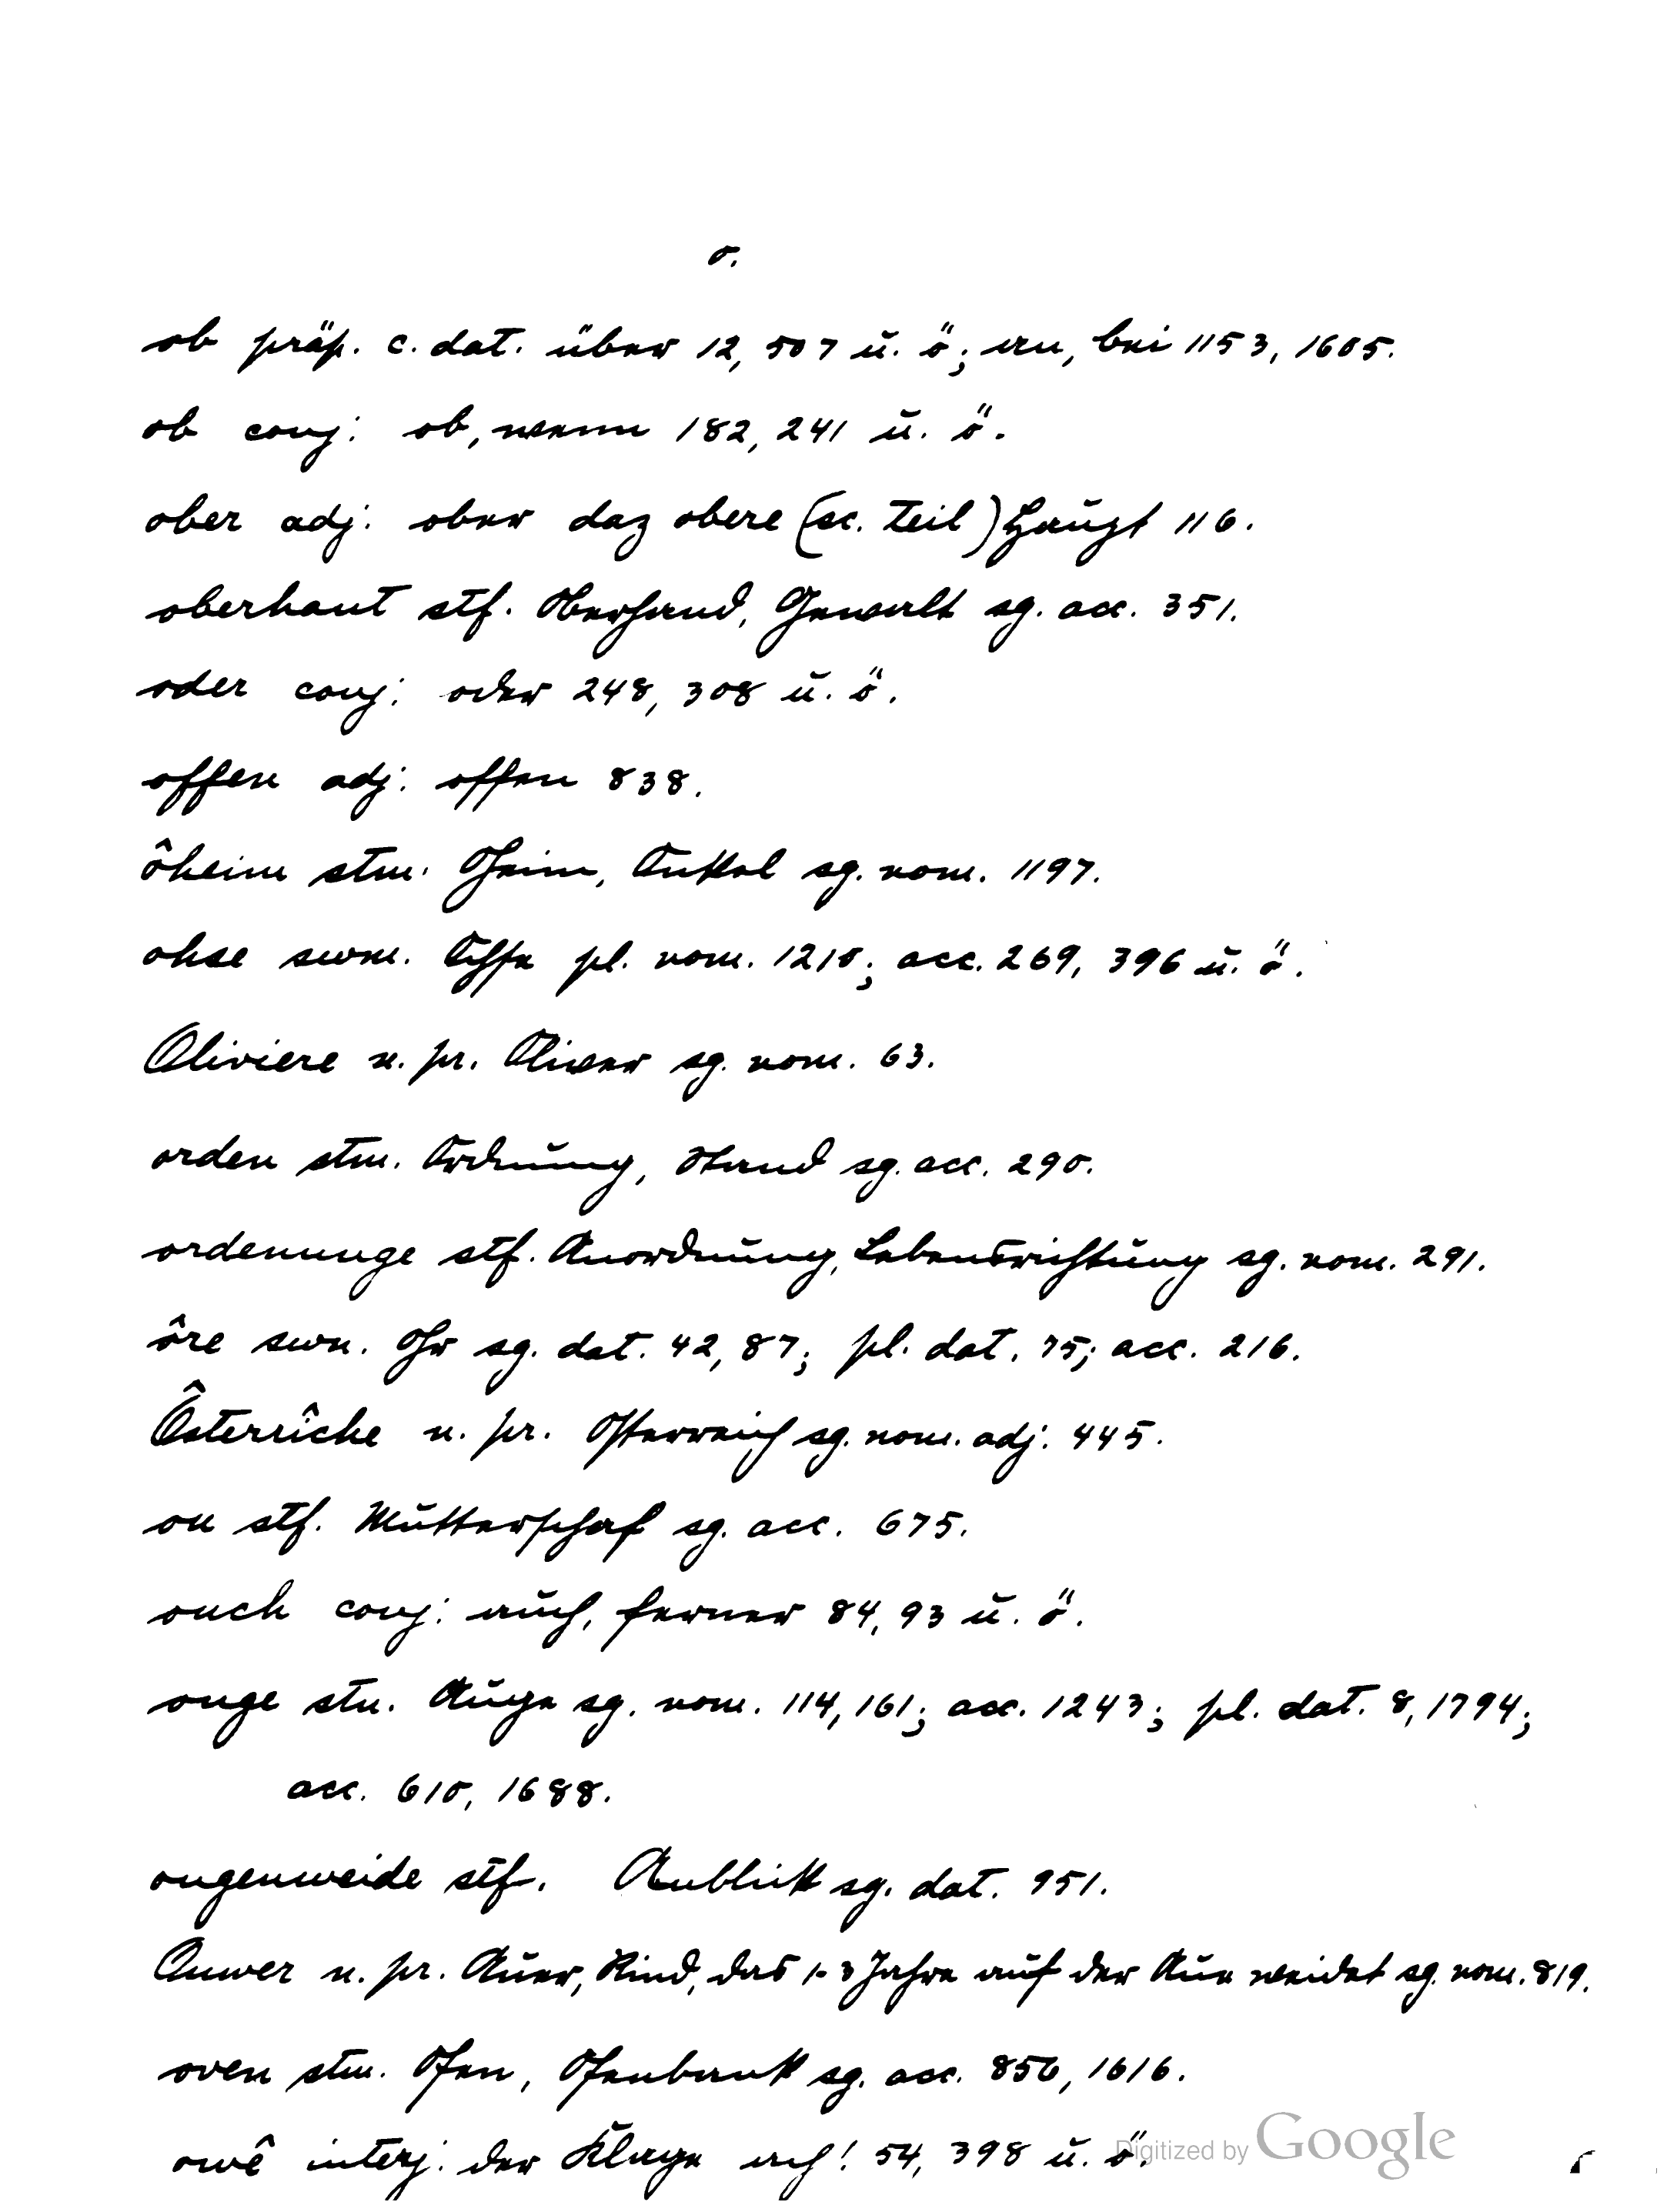 o.
ob präp. c. dat. über 12, 507 u. ö; an, bei 1153, 1605.
ob conj. ob, wenn 182, 241 u. ö.
ober adj. ober daz obere (sc. teil) Haupt 116.
oberhant stf. Oberhand, Gewalt sg. acc. 351.
oder conj. oder 248, 308 u. ö.
offen adj. offen 838.
ôheim stm. Oheim, Onkel sg. nom. 1197.
ohse swm. Ochse pl. nom. 1210; acc. 269, 396 u. ö.
Oliviere n. pr. Oliver sg. nom. 63.
orden stm. Ordnung, Stand sg. acc. 290.
ordenunge stf. Anordnung, Lebensrichtung sg. nom. 291.
ôre swn. Ohr sg. dat. 42, 87; pl. dat. 75; acc. 216.
Ôsterrîche n. pr. Österreich sg. nom. adj. 445.
ou stf. Mutterschaf sg. acc. 675.
ouch conj. auch, ferner 84, 93 u. ö.
ouge stn. Auge sg. nom. 114, 161; acc. 1243; pl. dat. 8, 1794;
acc. 610, 1688.
ougenweide stf. Anblick sg. dat. 951.
Ouwer n. pr. Auer, Rind, das 1-3 Jahre auf der Aue weidet sg. nom. 819.
oven stm. Ofen, Ofenbank sg. acc. 850, 1616.
owê interj. der Klage ach! 54, 398 u. ö.
Digitized by Google